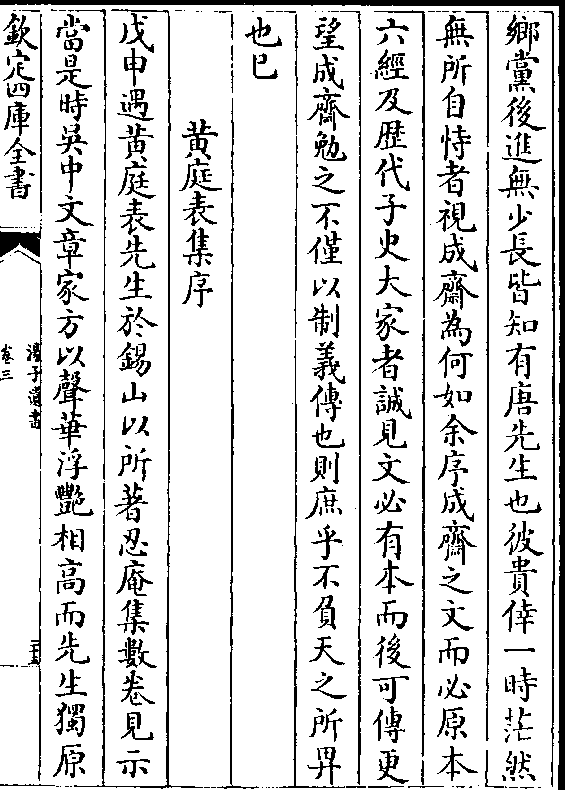 鄉黨後進無少長皆知有唐先生也彼貴倖一時茫然
無所自恃者視成齋為何如余序成齋之文而必原本
六經及歷代子史大家者誠見文必有本而後可傳更
望成齋勉之不僅以制義傳也則庶乎不負天之所畀
也已
黄庭表集序
戊申遇黄庭表先生於錫山以所著忍庵集數卷見示
當是時吳中文章家方以聲華浮艷相高而先生獨原
欽定四庫全書
湯子遺書
卷三
三十五